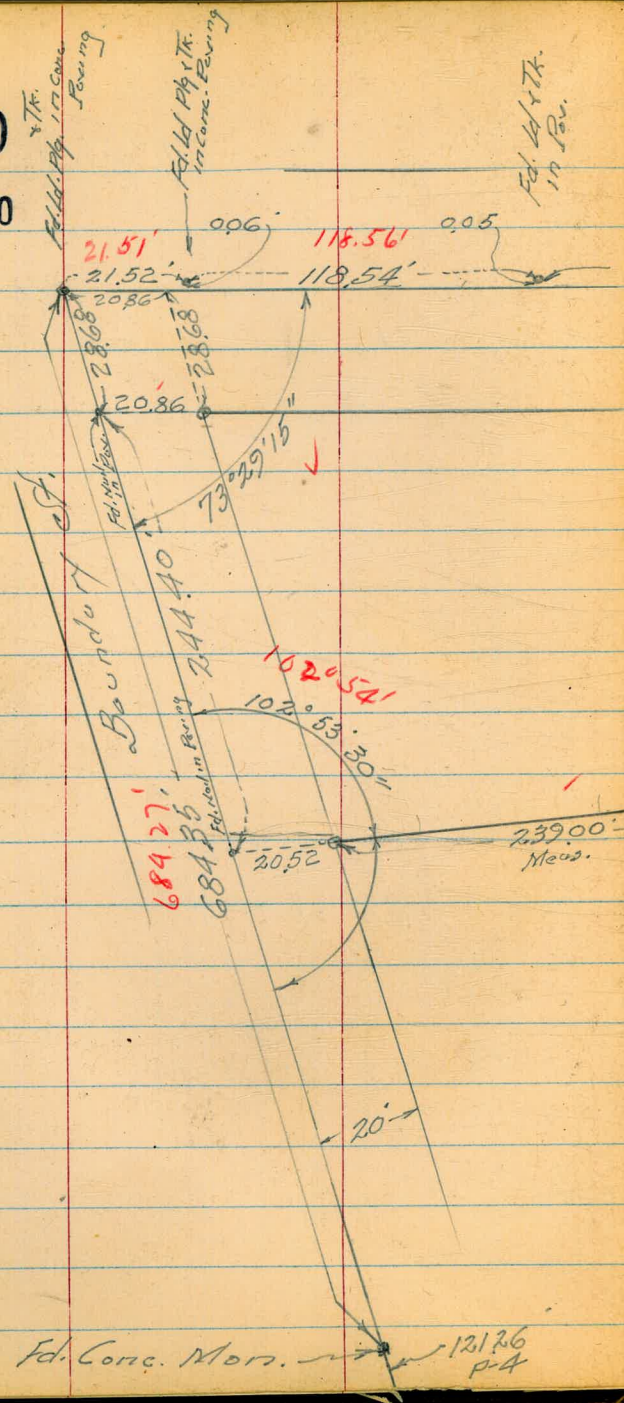 & Tk.
Fd. Ld. Plg. in Conc.
Paving
Fd. Ld Plg & Tk.
in Conc. Paving
Fd. Ld & Tk.
in Pav.
0
0.06'
0.05
21.51'
118.56'
21.52'
118.54'
20.86
28.68
28.68
20.86
Fd. Nail
in Pav.
73° 29' 15"
Boundary St.
244.40'
102° 54'
102° 53' 30"
Fd. Nail in Paving
684.27'
684.35'
20.52
239.00'
Meas.
20'
Fd. Conc. Mon.
121.26
P-4